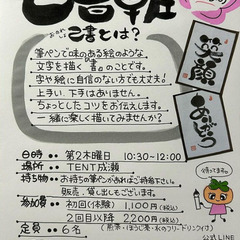 己書
己書とは?
筆ペンで味のある絵のような、
文字を描く『書』のことです。
字や絵に自信のない方でも大丈夫!
上手い、下手はありません。
ちょっとしたコツをお伝えします。
一緒に楽しく描いてみませんか?
笑顔
ありがとう
日時 第2木曜日 10:30~12:00
場所 TENT成瀬
持ち物 お持ちの筆ペンがあればご持参下さい。
販売、貸し出しもございます。
待ってます♡
参加費 初回(体験) 1,100円(税込)
2回目以降 2200円(税込)
定員 6名
(煎茶・ほうじ茶・水のフリードリンク付)
公式LINE